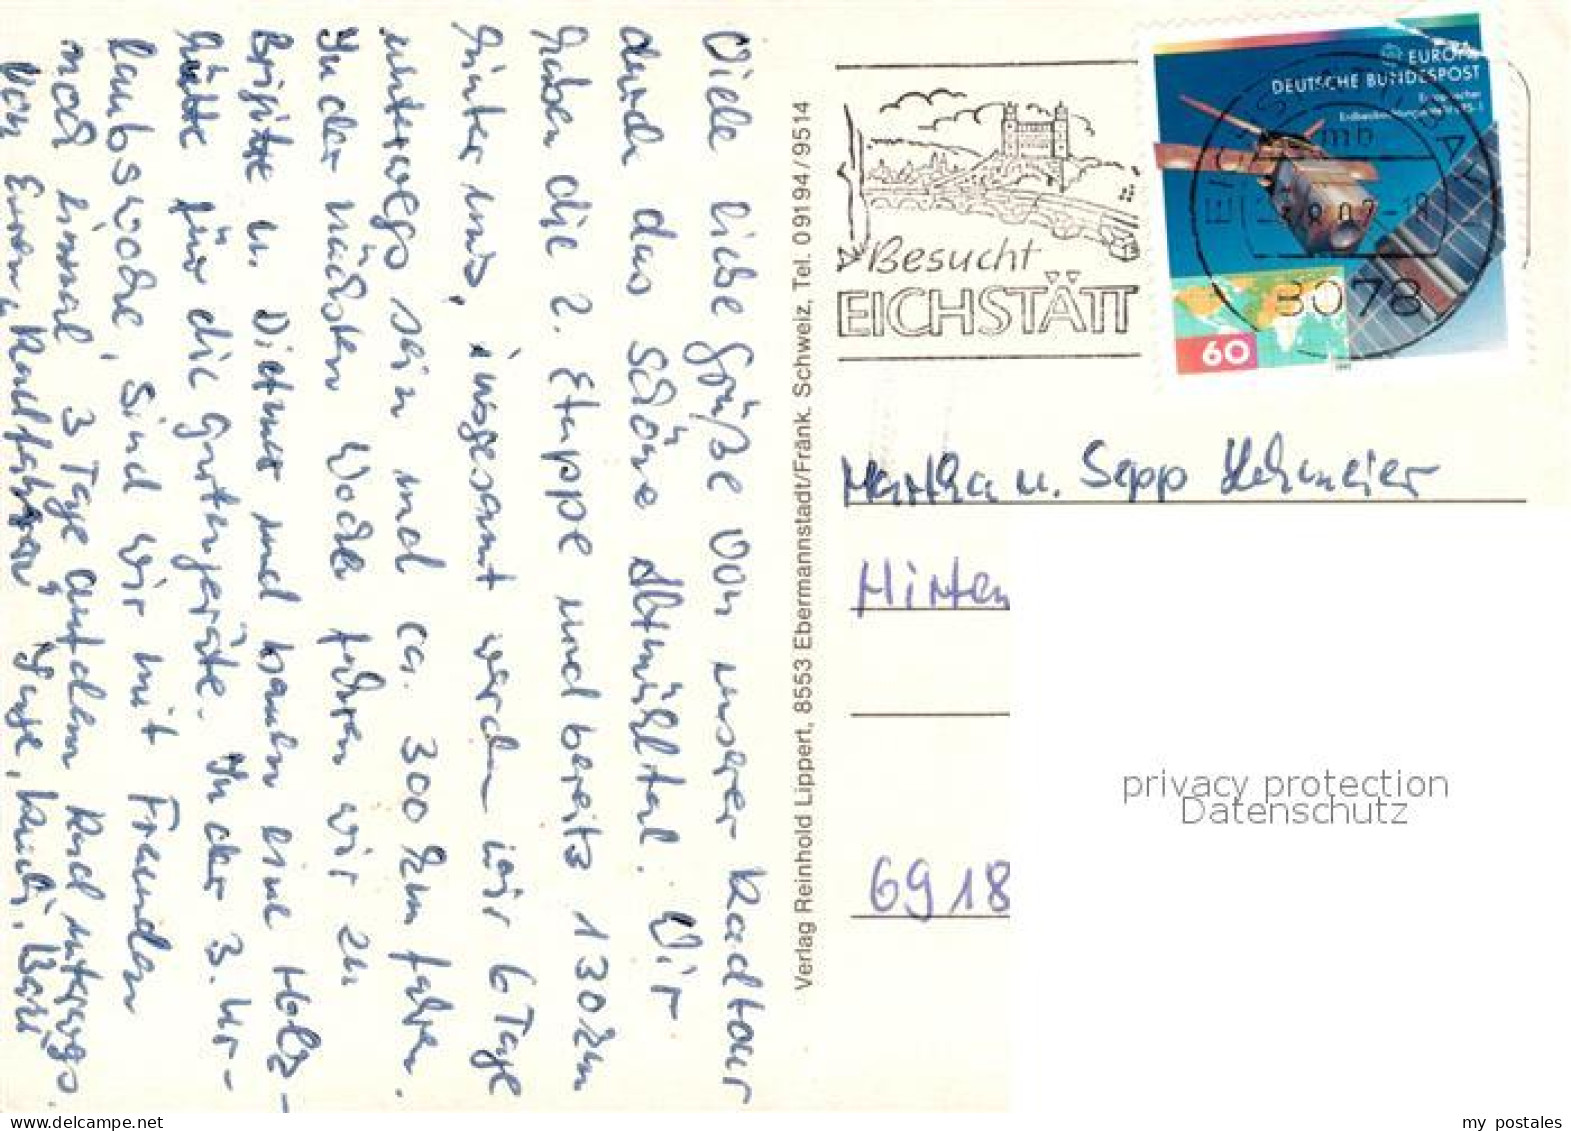 Viele liebe Grüße von unserer Radtour
durch das schöne Altmühltal. Wir
haben die 2. Etappe und bereits 130 km
hinter uns, insgesamt werden wir 6 Tage
unterwegs sein und ca. 300 km fahren.
In der nächsten Woche fahren wir zu
Brigitte u. Dietmar und bauen eine Holz-
hütte für die Gartengeräte. In der 3. Ur-
laubswoche, sind wir mit Freunden
noch einmal 3 Tage auf dem Rad unterwegs.
Von Euren „Radfahrern"
Verlag Reinhold Lippert, 8553 Ebermannstadt/Fränk. Schweiz, Tel. 09194/9514
Besucht
EICHSTÄTT
EUROPA
DEUTSCHE BUNDESPOST
Europäischer
60
mb
8078
Martha u. Sepp
Hirten
6918
privacy protection
Datenschutz
my postales